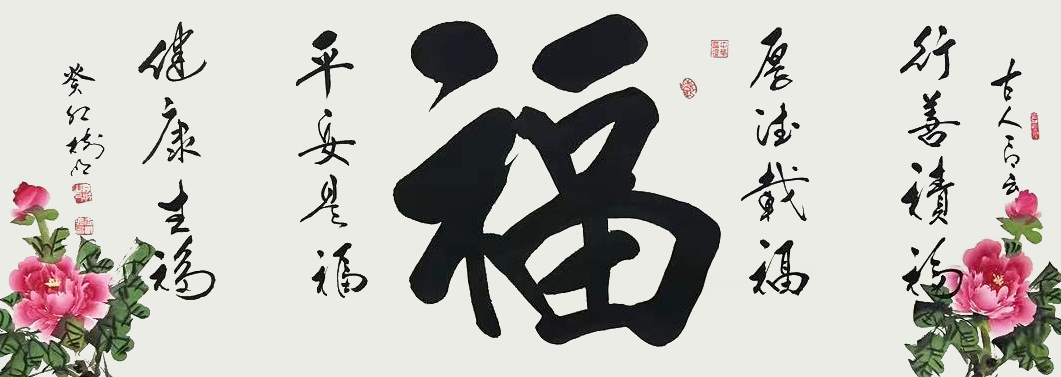 古人云
行善積福
厚德載福
福
平安是福
健康生福
癸